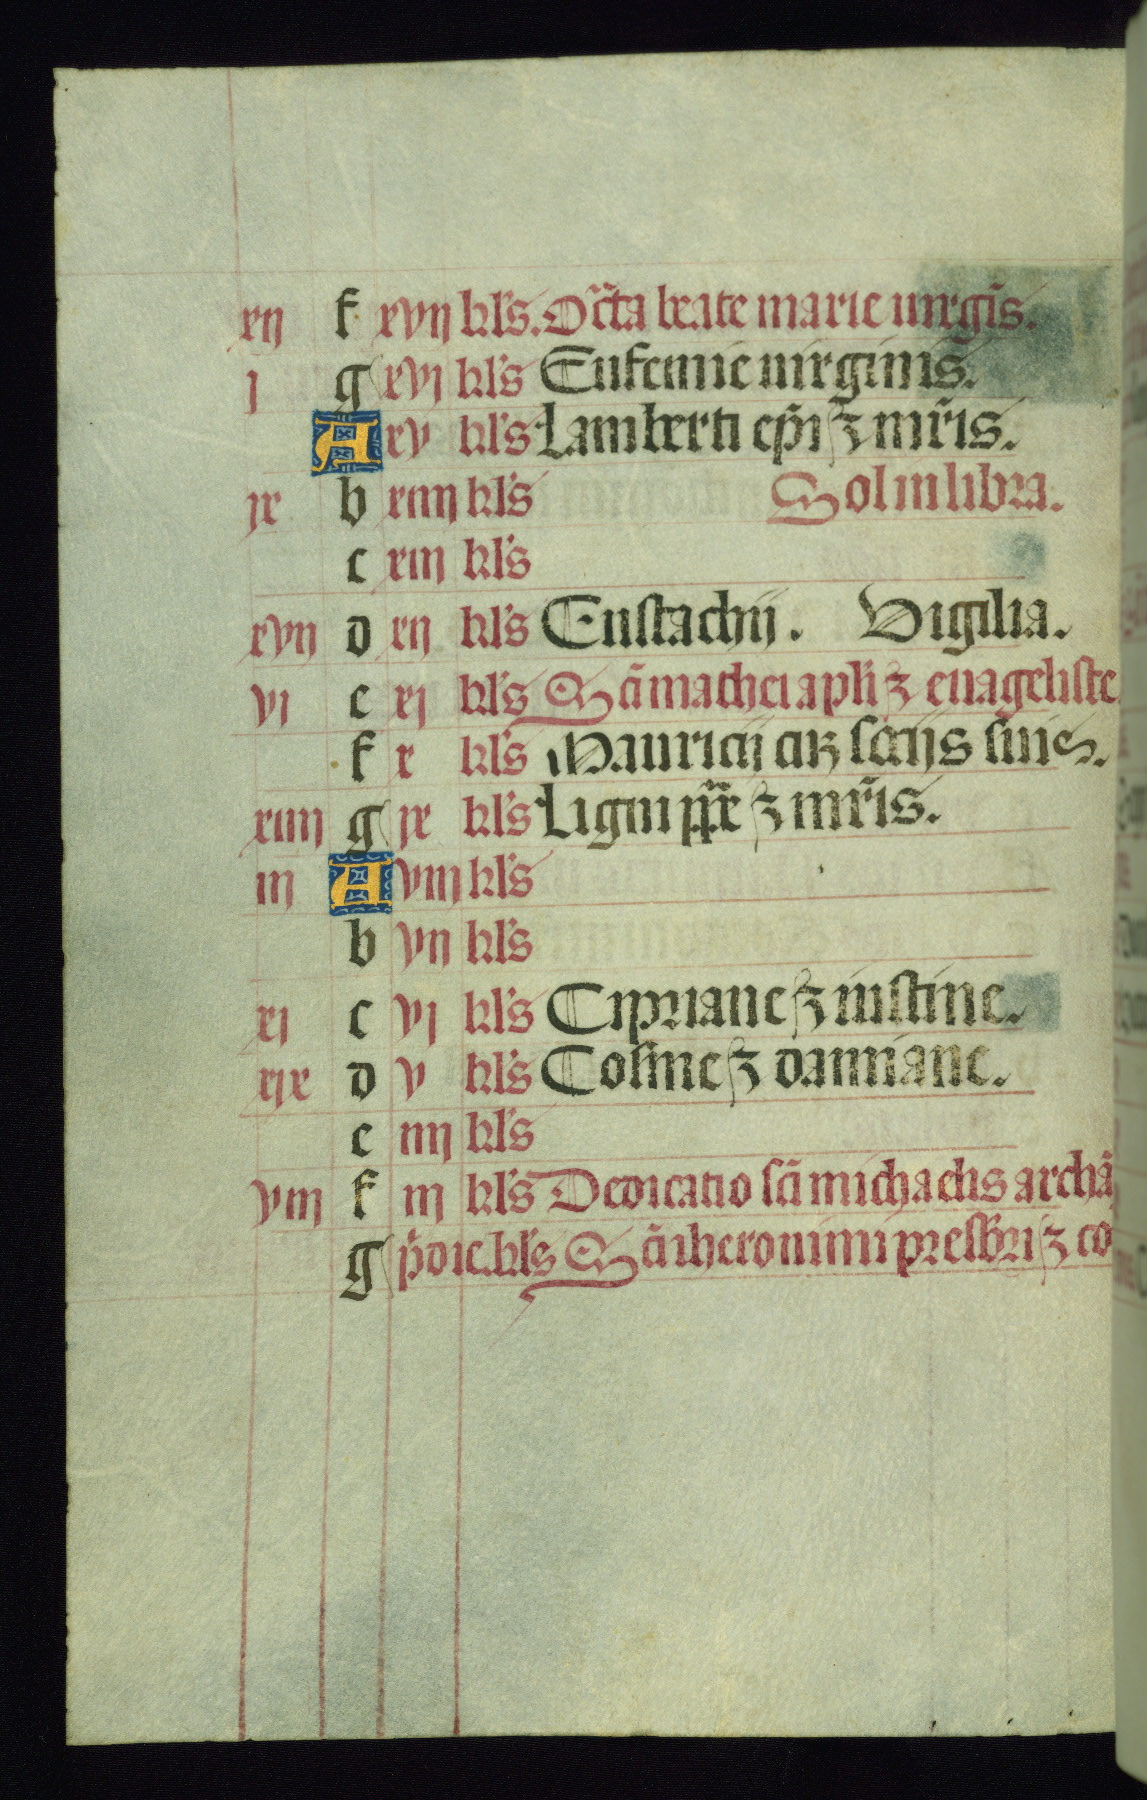 xij f xvij kl's. Oct̃a beate marie uirgĩs.
j g xvj kl's Eufemie uirginis.
A xv kl's Lamberti ep̃i ⁊ mr̃is.
jx b xiiij kl's Sol in libra.
c xiij kl's
xvij d xij kl's Eustachij. Vigilia.
vj e xj kl's Sc̃i mathei apl'i ⁊ euãgeliste
f x kl's Mauricij
xiiij g jx kl's Ligni pp̃e ⁊ mr̃is.
iij A viij kl's
b vij kl's
xj c vj kl's Cipriane ⁊ iustine.
xjx d v kl's Cosme ⁊ damiane.
e iiij kl's
viij f iij kl's Dedicatio sc̃i michaelis archã
g p̃die. kl's Sc̃i iheronimi presb̃ri ⁊ co